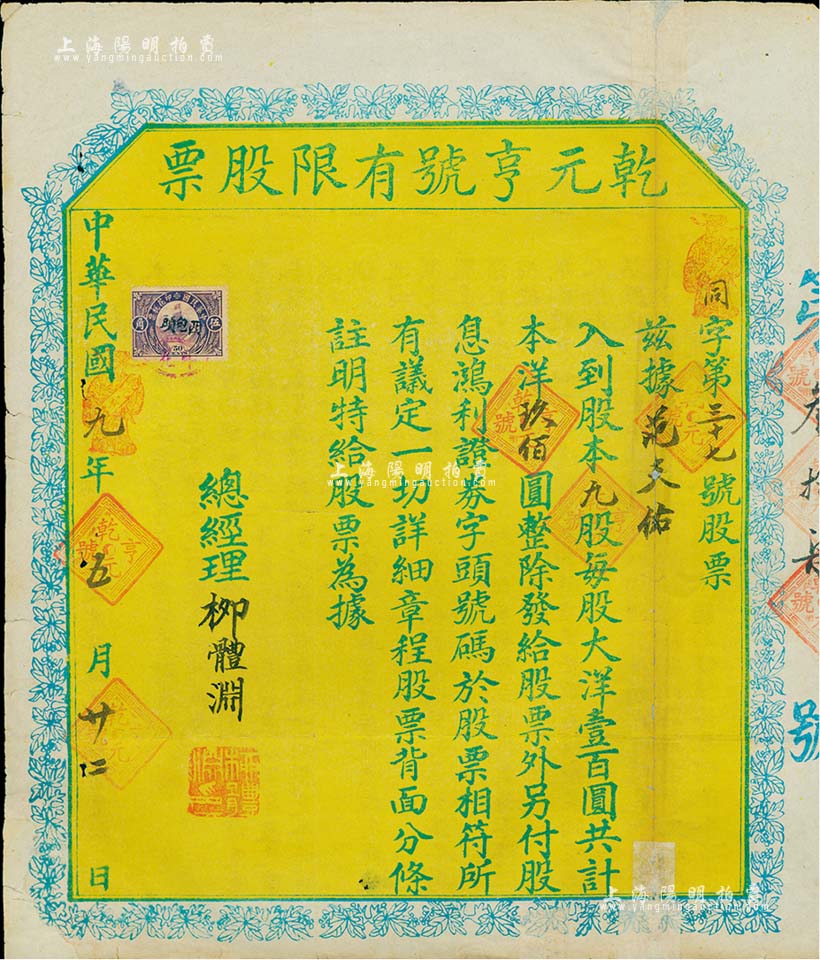 上海陽明拍賣
www.yangmingauction.com
乾元亨號有限股票
同字第三十七號股票
茲據范天佑
入到股本九股每股大洋壹百圓共計
本洋玖佰圓整除發給股票外另付股
息鴻利證券字頭號碼於股票相符所
有議定一切詳細章程股票背面分條
註明特給股票為據
總經理柳體淵
中華民國九年五月廿二日
乾元亨號
號
上海陽明拍賣
www.yangmingauction.com
上海陽明拍賣
www.yangmingauction.com